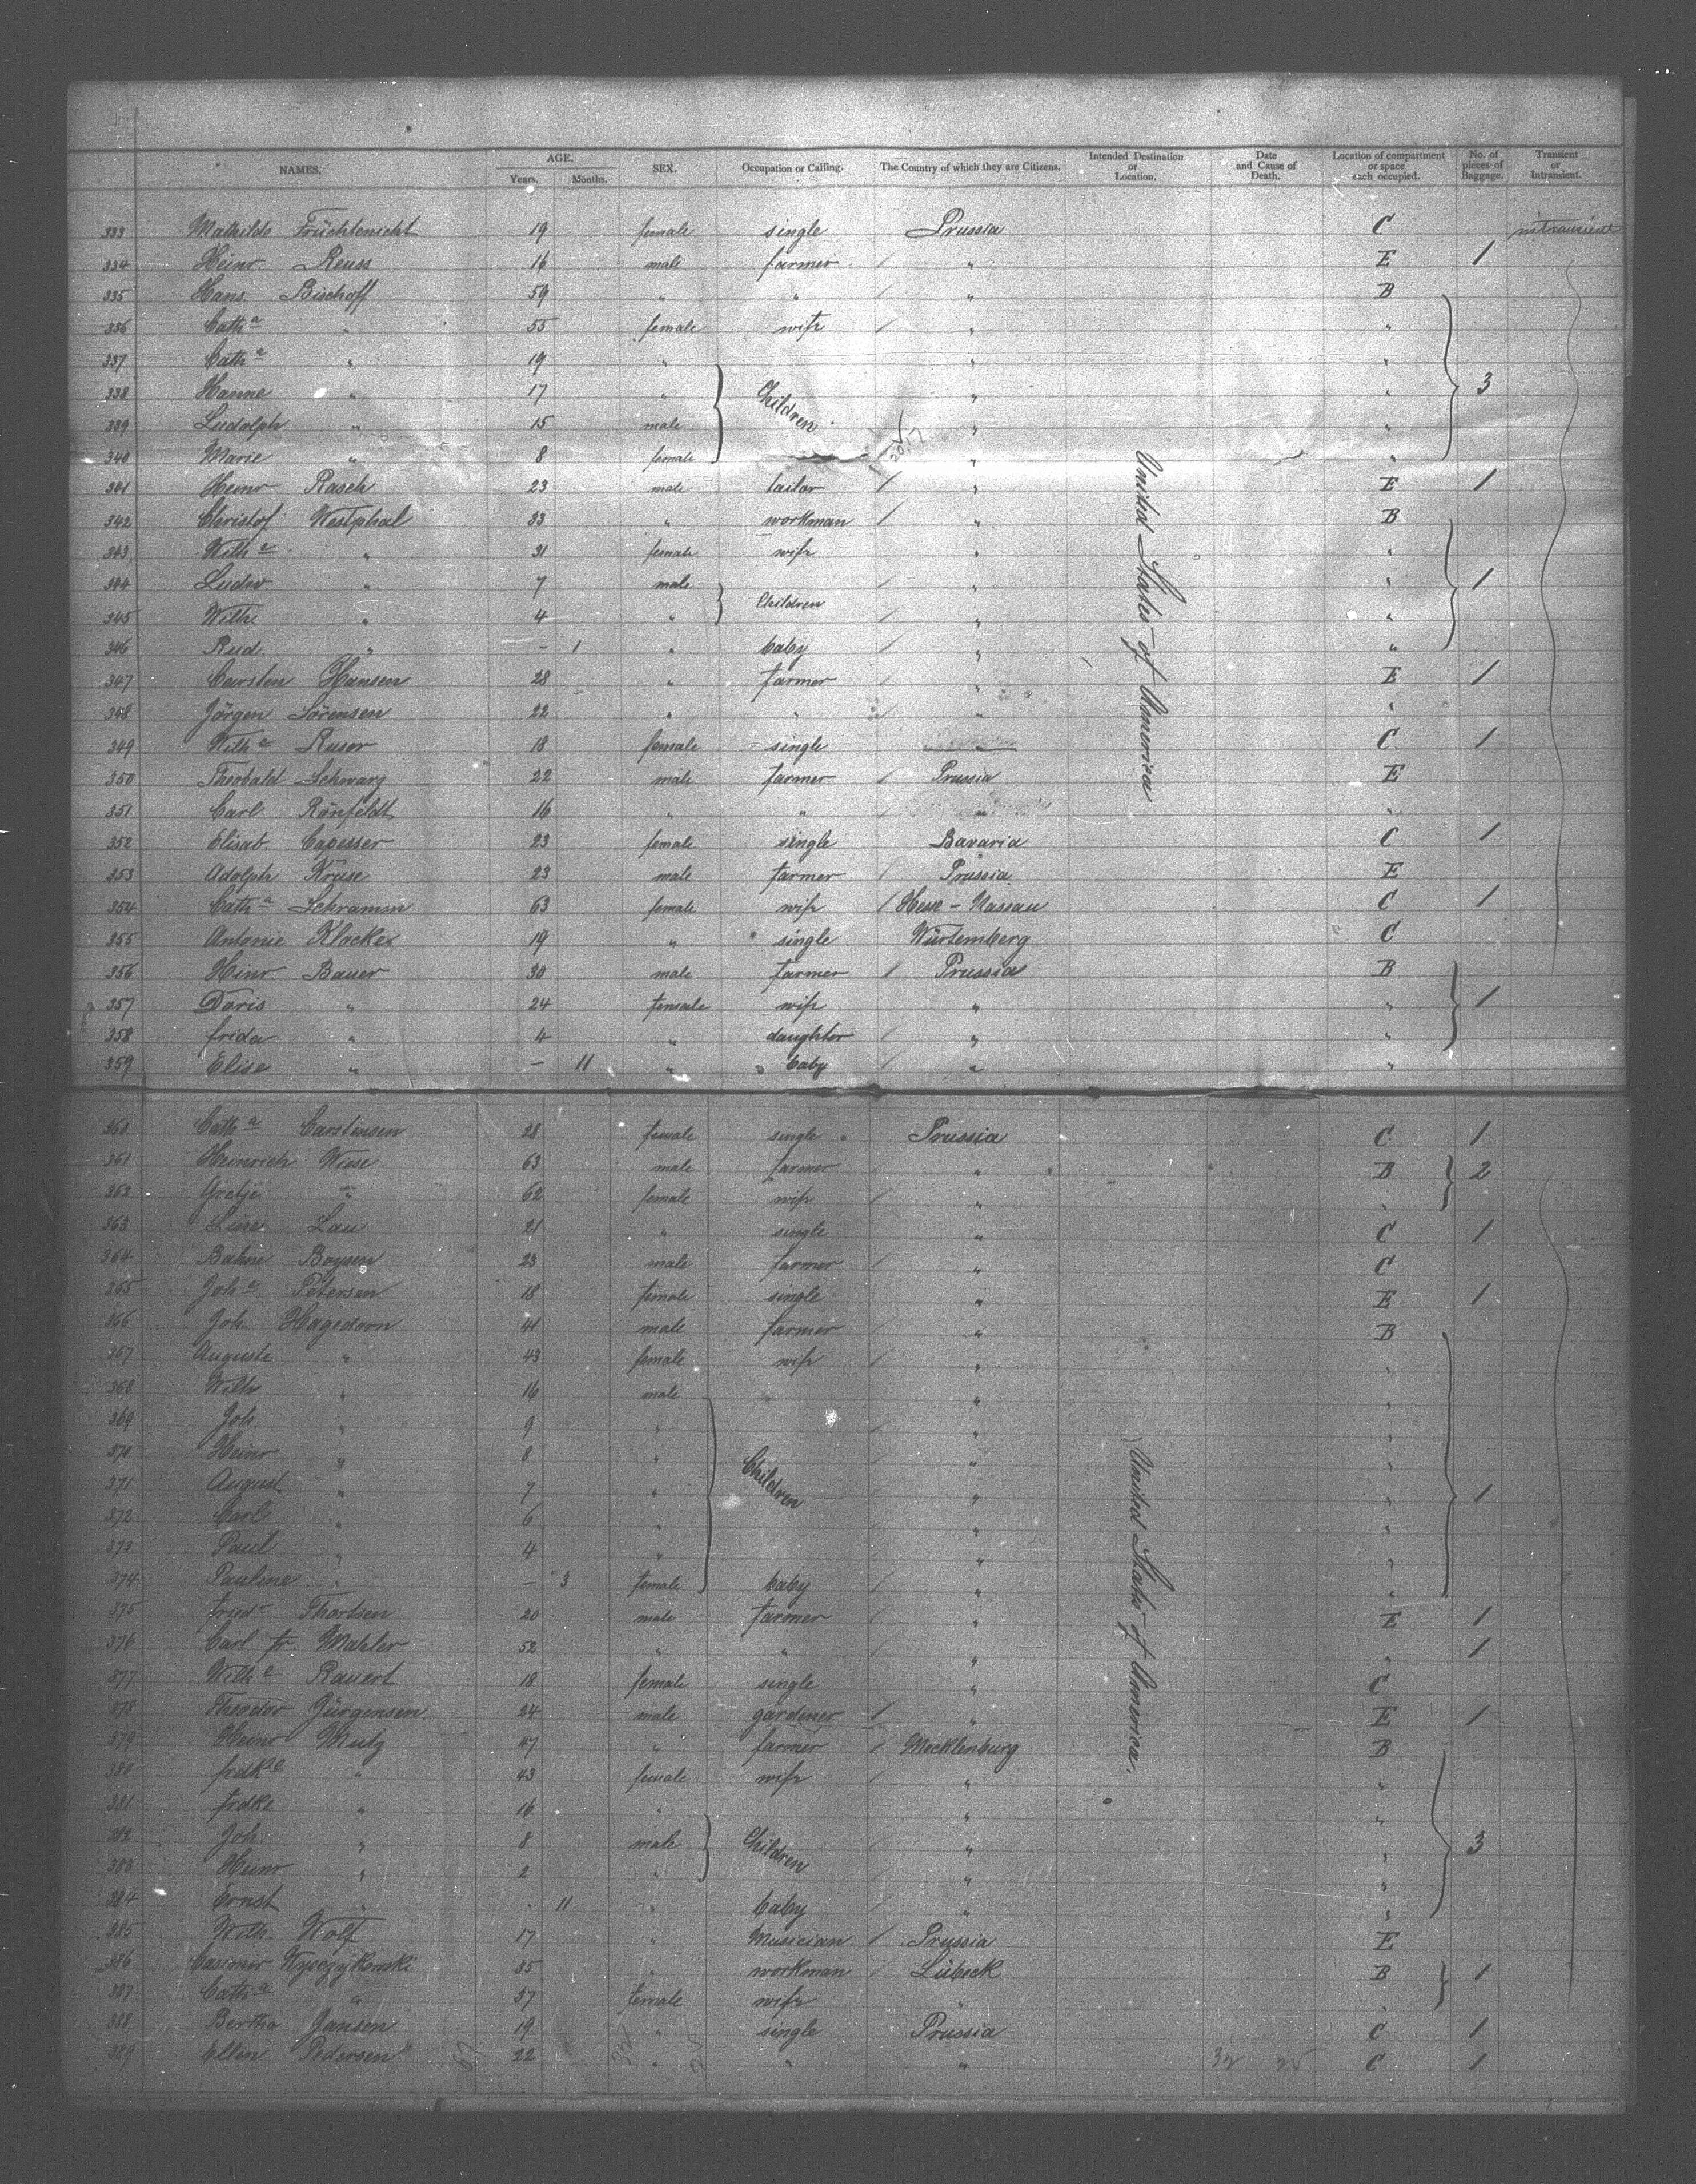 NAMES. AGE. Years. Months. SEX. Occupation or Calling. The Country of which they are Citizens. Intended Destination or Location. Date and Cause of Death. Location of compartment or space each occupied. No. of pieces of Baggage. Transient or Intransient.
333 Mathilde Früchtenicht 19 female single Prussia C intransient
334 Heinr. Reuss 16 male farmer " E 1
335 Hans Bischoff 59 " " " B
336 Cath a " 55 female wife " "
337 Cath a " 19 " " "
338 Hanne " 17 " Children " " 3
339 Ludolph " 15 male " "
340 Marie " 8 female " "
341 Heinr Rasch 23 male tailor " E 1
342 Christof Westphal 33 " workman " B
343 Wilh e " 31 female wife " "
344 Ludw. " 7 male " " 1
345 Wilh. " 4 " Children " "
346 Rud. " – 1 " baby " "
347 Carsten Hansen 28 " farmer " E 1
348 Jörgen Sörensen 22 " " " "
349 Wilh e Rusor 18 female single C 1
350 Theobald Schwarz 22 male farmer Prussia E
351 Carl Rönfeldt 16 " " " "
352 Elisab. 23 female single Bavaria C 1
353 Adolph Kruse 23 male farmer Prussia E
354 Cath a Schramm 63 female wife Hesse - Nassau C 1
355 Antonie Klocker 19 " single Würtemberg C
356 Heinr Bauer 30 male farmer Prussia B
357 Doris " 24 female wife " " 1
358 frida " 4 " daughter " "
359 Elise " – 11 " baby " "
United States of America
360 Cath a Carstensen 28 female single Prussia C 1
361 Heinrich Wiese 63 male farmer " B 2
362 Gretje " 62 female wife " "
363 Line Lau 21 " single " C 1
364 Bahne Boysen 23 male farmer " C
365 Joh a Petersen 18 female single " E 1
366 Joh. Hagedorn 41 male farmer " B
367 Auguste " 43 female wife " "
368 Wilh " 16 male " "
369 Joh. " 9 " " "
370 Heinr " 8 " Children " "
371 August " 7 " " " 1
372 Carl " 6 " " "
373 Paul " 4 " " "
374 Pauline " – 3 female baby " "
375 fried r Thordsen 20 male farmer " E 1
376 Carl fr. Mahler 52 " " " " 1
377 Wilh e Rauert 18 female single " C
378 Theodor Jürgensen. 24 male gardener " E 1
379 Heinr Mutz 47 " farmer Mecklenburg B
380 frdke " 43 female wife " "
381 frdke " 16 " " "
382 Joh. " 8 male Children " " 3
383 Heinr " 2 " " "
384 Ernst " 11 " baby " "
385 Wilh. Wolf 17 " Musician Prussia E
386 Casimir 35 " workman Lübeck B 1
387 Cath a " 37 female wife " "
388 Bertha Jansen 19 " single Prussia C 1
389 Ellen Pedersen 22 " " " C 1
United States of America.